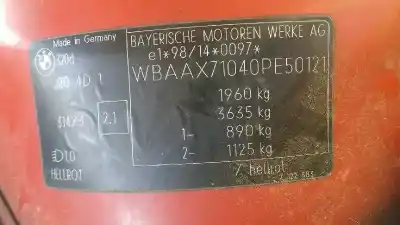 Made in Germany
BAYERISCHE MOTOREN WERKE AG
e1*98/14*0097*
320d
WBAAX71040PE50121
1960 kg
3635 kg
2,1
1- 890 kg
2- 1125 kg
1,0
HELLROT
/ hellrot